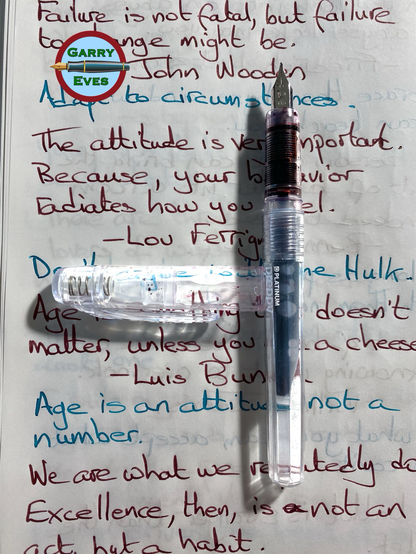 Failure is not fatal, but failure
to might be.
GARRY
EVES
John Wooden
Adapt to circumstances.
The attitude is very important.
Because, your behavior
Eadiates how you feel.
—Lou Ferrig
Don't the Hulk.
Age is doesn't
matter, unless you a cheese
—Luis Bun
PLATINUM
Age is an attitu not a
number.
We are what we re tedly do
Excellence, then, is not an
act, but a habit.